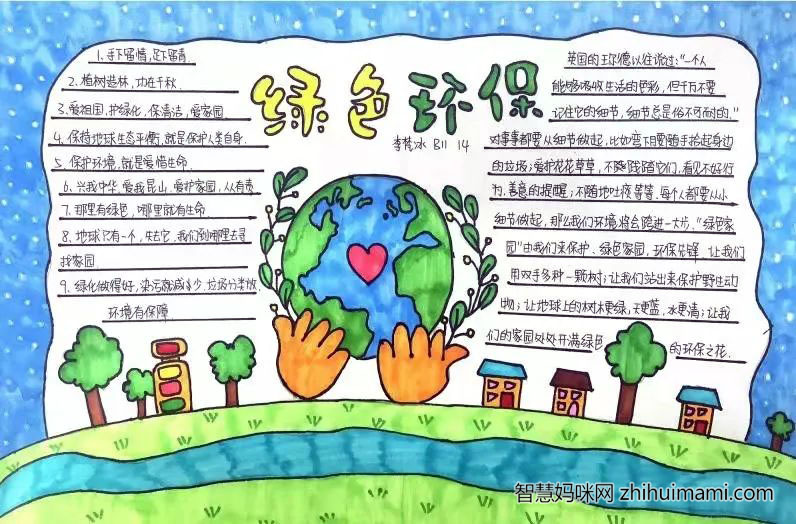 绿色环保
李梵冰 B11 14
1、手下留情,足下留青.
2、植树造林,功在千秋.
3、爱祖国,护绿化,保清洁,爱家园.
4、保持地球生态平衡,就是保护人类自身.
5、保护环境,就是爱惜生命.
6、兴我中华,爱我昆山,爱护家园,从有责
7、那里有绿色,哪里就有生命
8、地球只有一个,失去它,我们到哪里去寻
找家园
9、绿化做得好,污染就减少,垃圾分类放.
环境有保障.
英国的王尔德以往说过:"一个人
能够吸收生活的色彩,但千万不要
记住它的细节,细节总是俗不可耐的."
对事事都要从细节做起,比如弯下腰随手拾起身边
的垃圾;爱护花花草草,不践踏它们,看见不好行
为,善意的提醒;不随地吐痰等等.每个人都要从小
细节做起,那么我们环境将会跨进一大步."绿色家
园"由我们来保护、绿色家园,环保先锋 让我们
用双手多种一颗树;让我们站出来保护野生动
物;让地球上的树木更绿,天更蓝,水更清;让我
们的家园处处开满绿色的环保之花.
智慧妈咪网 zhihuimami.com